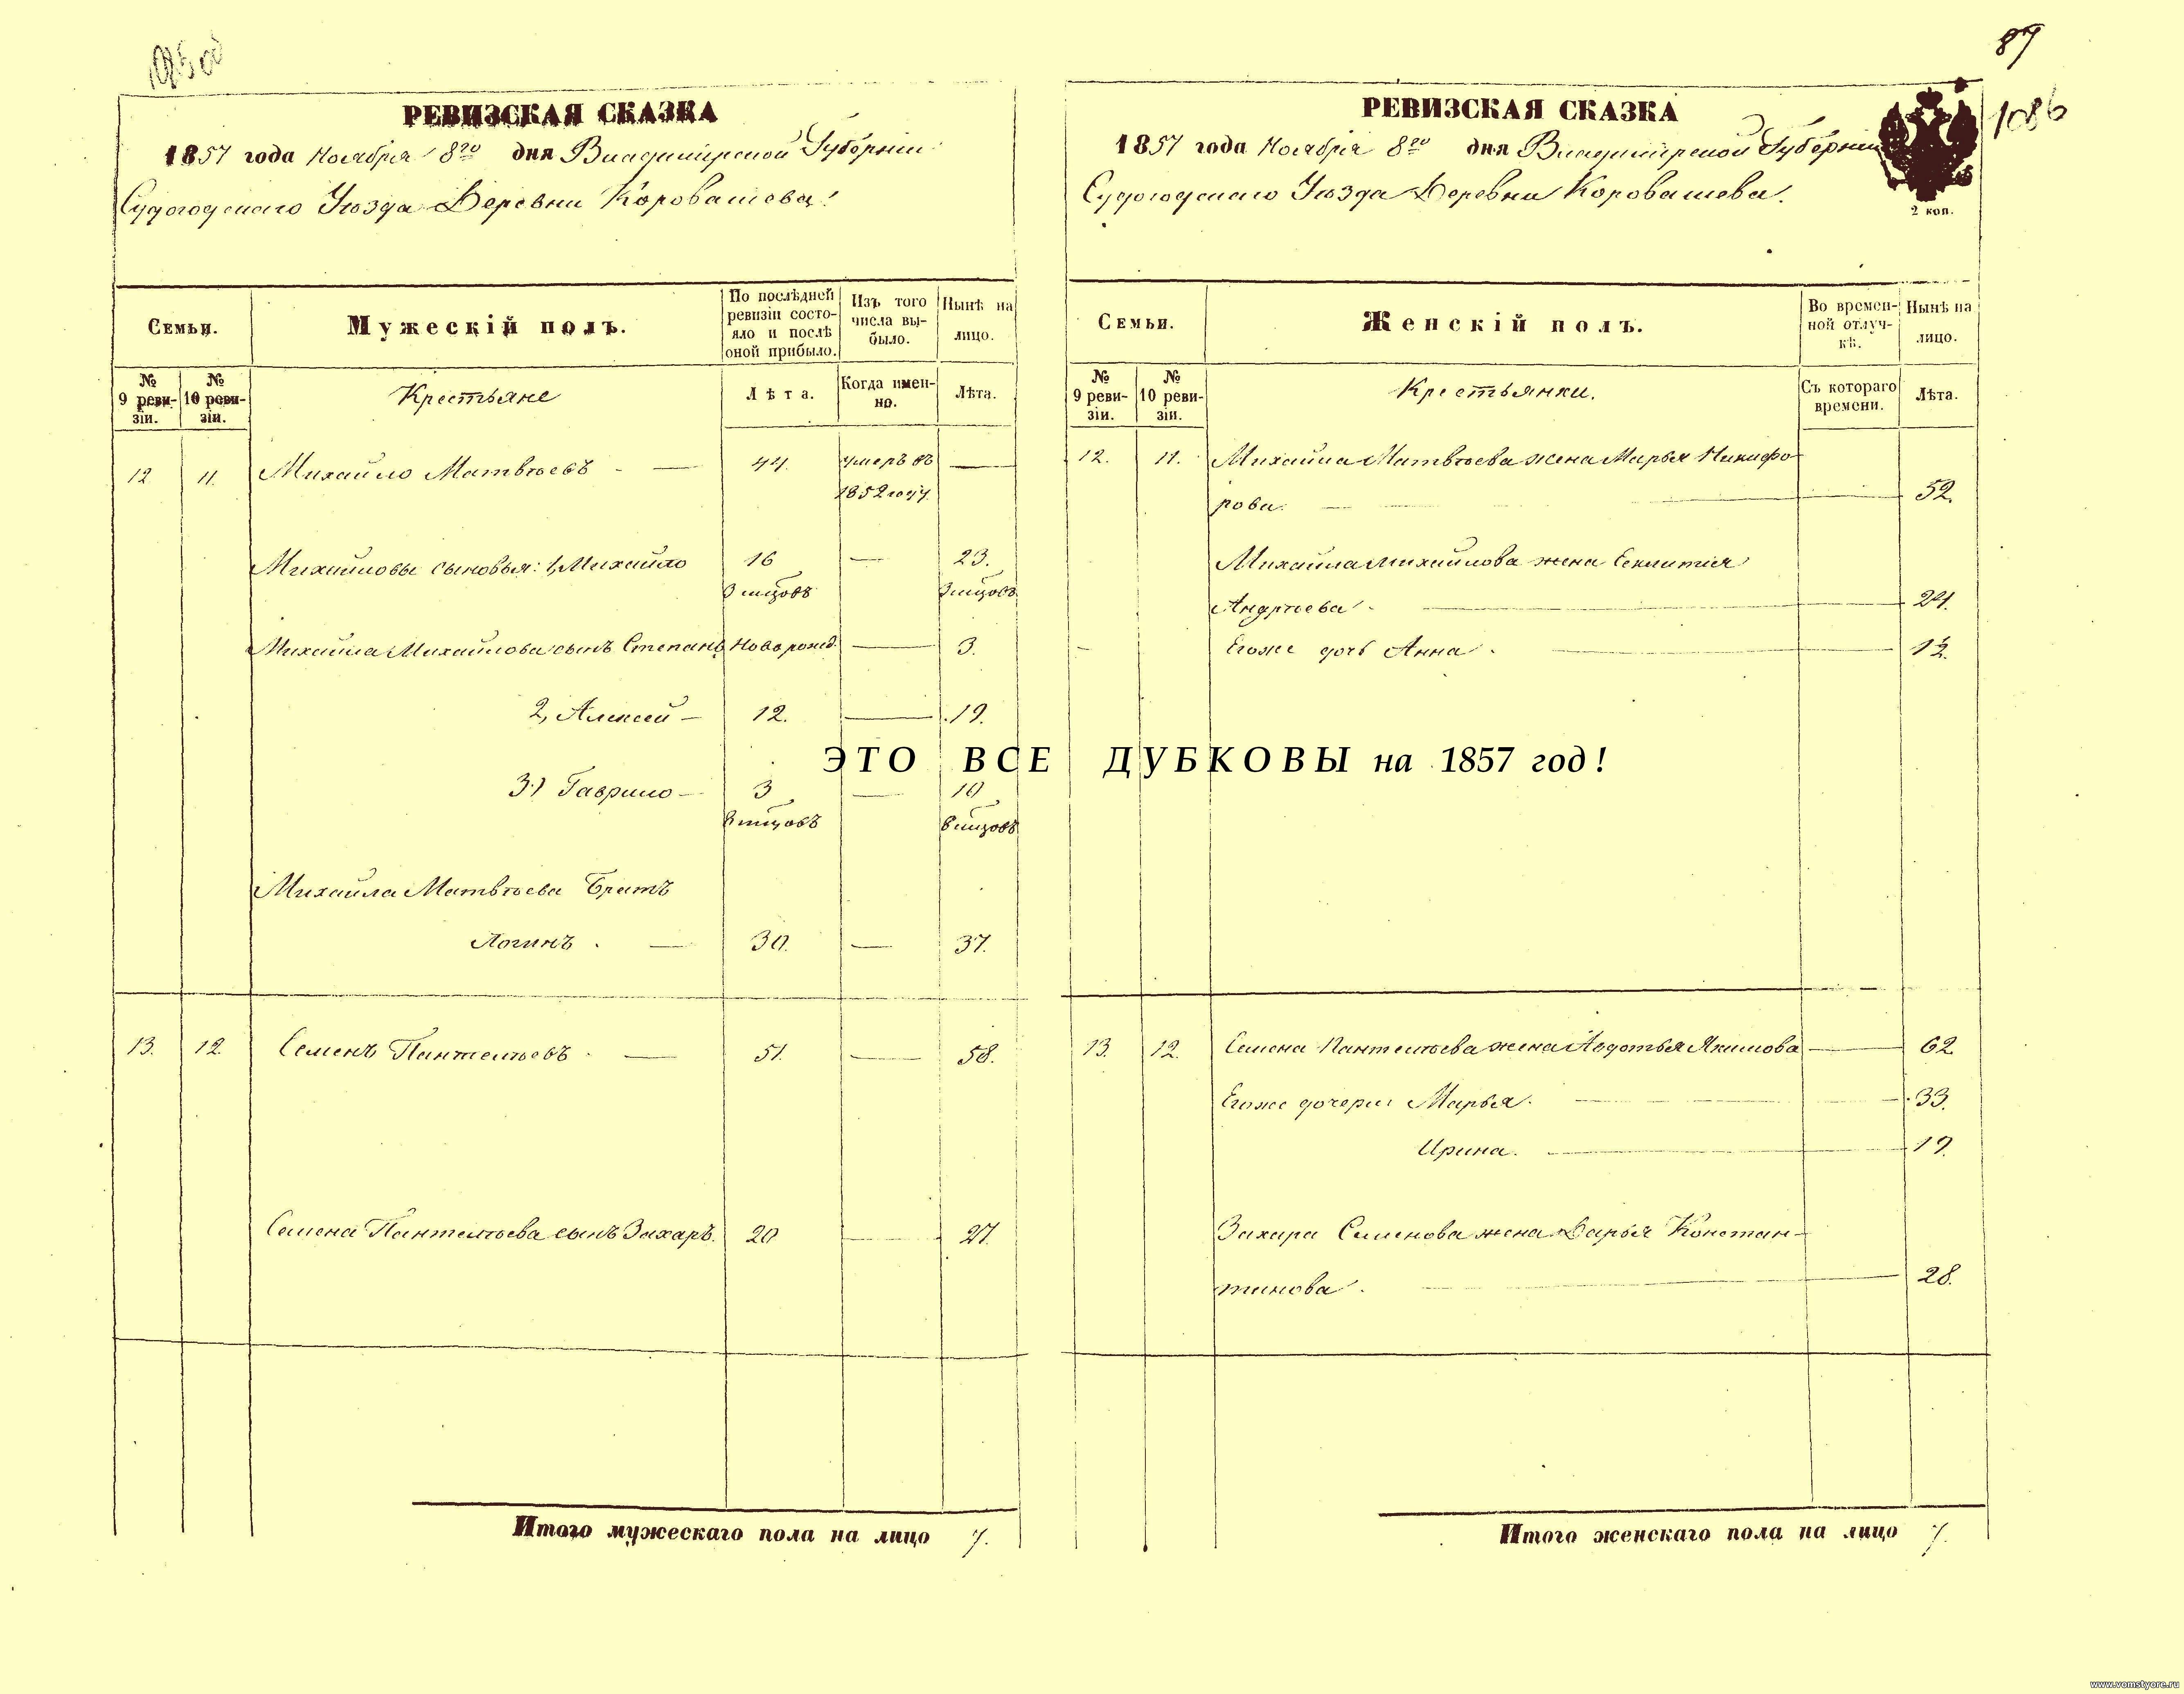 87
1086
РЕВИЗСКАЯ СКАЗКА
1857 года Ноября 8го дня Владимирской Губернии
Судогодскаго Уѣзда Деревни Коровашева.
Семьи.
Мужескій полъ.
По послѣдней ревизіи состояло и послѣ оной прибыло.
Изъ того числа выбыло.
Нынѣ на лицо.
№ 9 ревизіи.
№ 10 ревизіи.
Крестьяне
Лѣта.
Когда именно.
Лѣта.
12 11. Михайло Матвѣевъ — 44. умеръ въ —
1852 году.
Михайловы сыновья: 1, Михайло 16 — 23.
Михайла Михайлова сынъ Степанъ новорожд. — 3.
2, Алексей — 12. — 19.
3) Гаврило — 3 — 10
Михайла Матвѣева Братъ
Логинъ. — 30. — 37.
13. 12. Семенъ Пантелѣевъ. — 51. — 58.
Семена Пантелѣева сынъ Захаръ. 20 — 27.
Итого мужескаго пола на лицо 7.
РЕВИЗСКАЯ СКАЗКА
1857 года Ноября 8го дня Владимирской Губернии
Судогодскаго Уѣзда Деревни Коровашева.
2 коп.
Семьи.
Женскій полъ.
Во временной отлучкѣ.
Нынѣ на лицо.
№ 9 ревизіи.
№ 10 ревизіи.
Крестьянки.
Съ котораго времени.
Лѣта.
12. 11. Михайла Матвѣева жена Марья Никифо
рова. — 52.
Михайла Михайлова жена
Андрѣева. — 24.
Егоже дочь Анна. —
13. 12. Семена Пантелѣева жена Авдотья Якимова — 62
Егоже дочери: Марья. — 33.
Ирина. — 19.
Захара Семенова жена Дарья Констан-
тинова. — 28.
Итого женскаго пола на лицо 7.
ЭТО ВСЕ ДУБКОВЫ на 1857 год!
www.vomstyore.ru